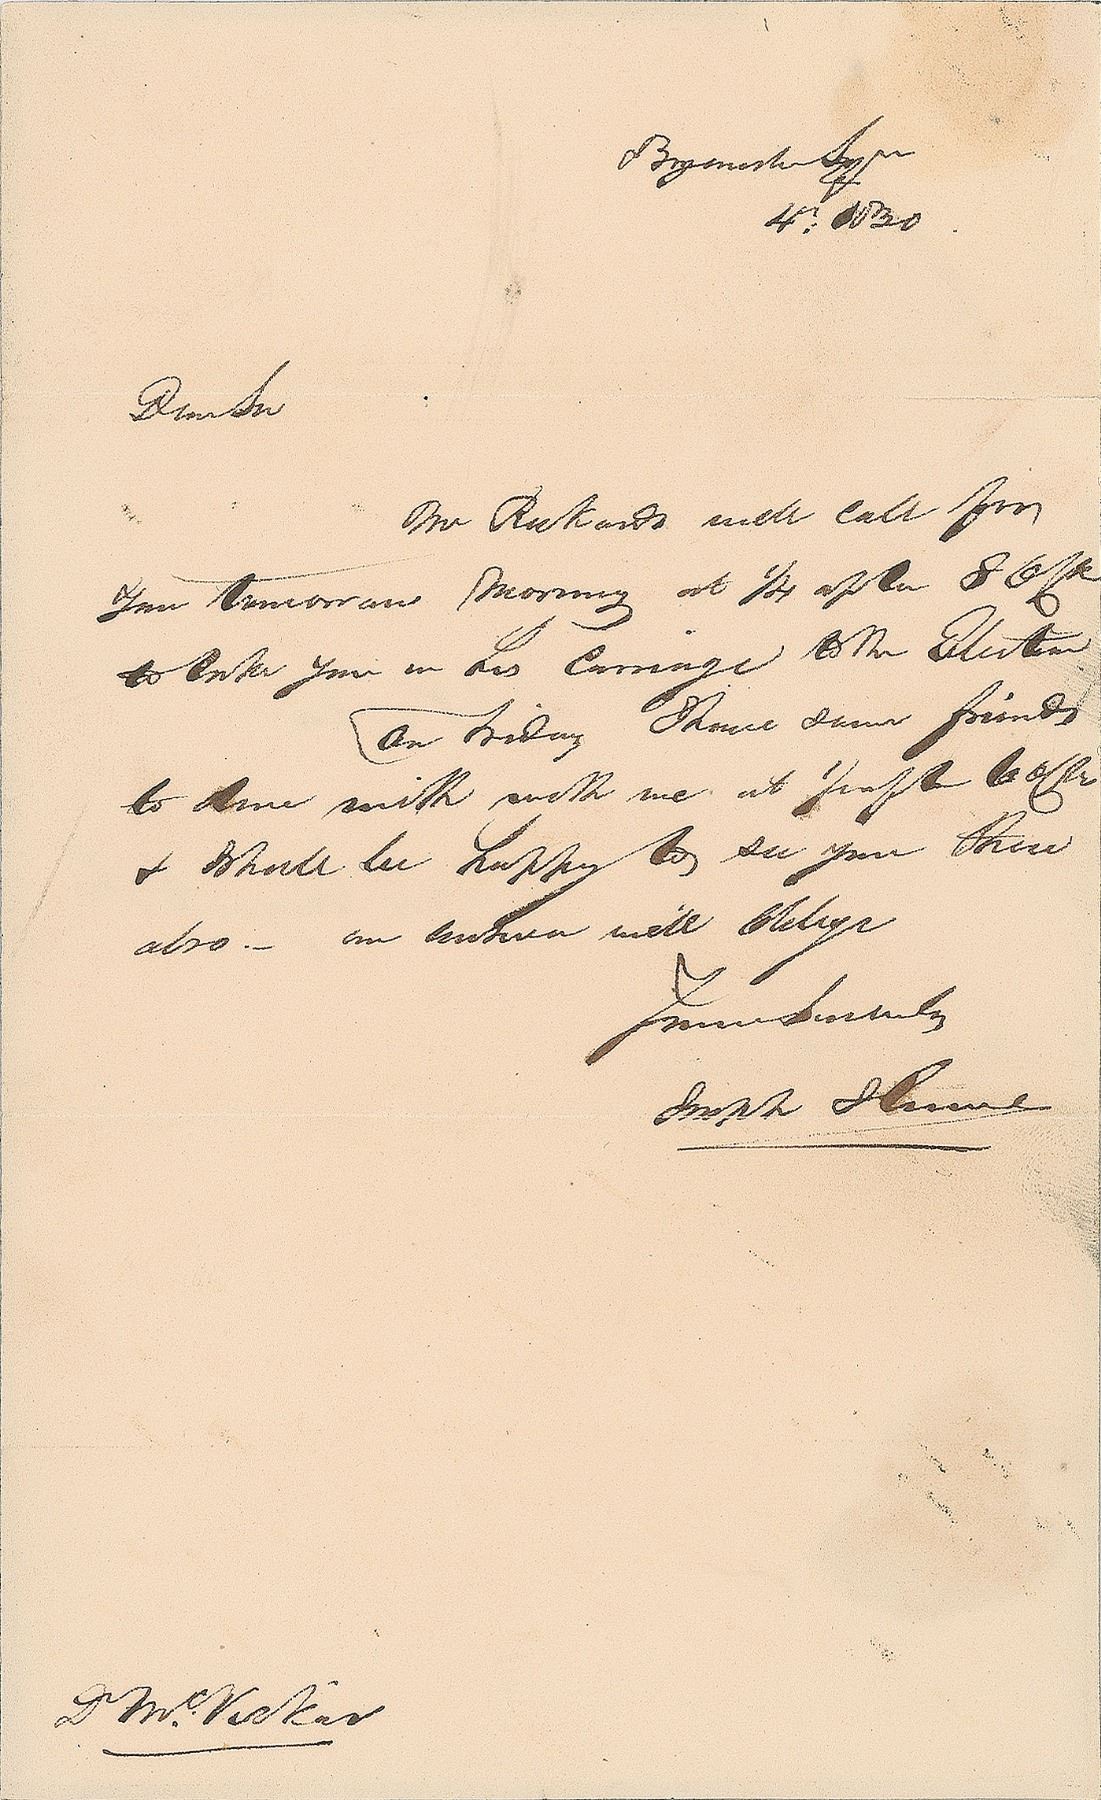 Bryanston Sqr
4th 1830
Dear Sir
Mr Rickards will call for
you tomorrow Morning at 1/4 after 8 OClk
to take you in his Carriage to the Election
On Friday I have some friends
to dine with with me at 1/2 after 6 OClk
& I shall be happy to see you there
also – an answer will Oblige
Yours Sincerely
Joseph Hume
Dr Mc